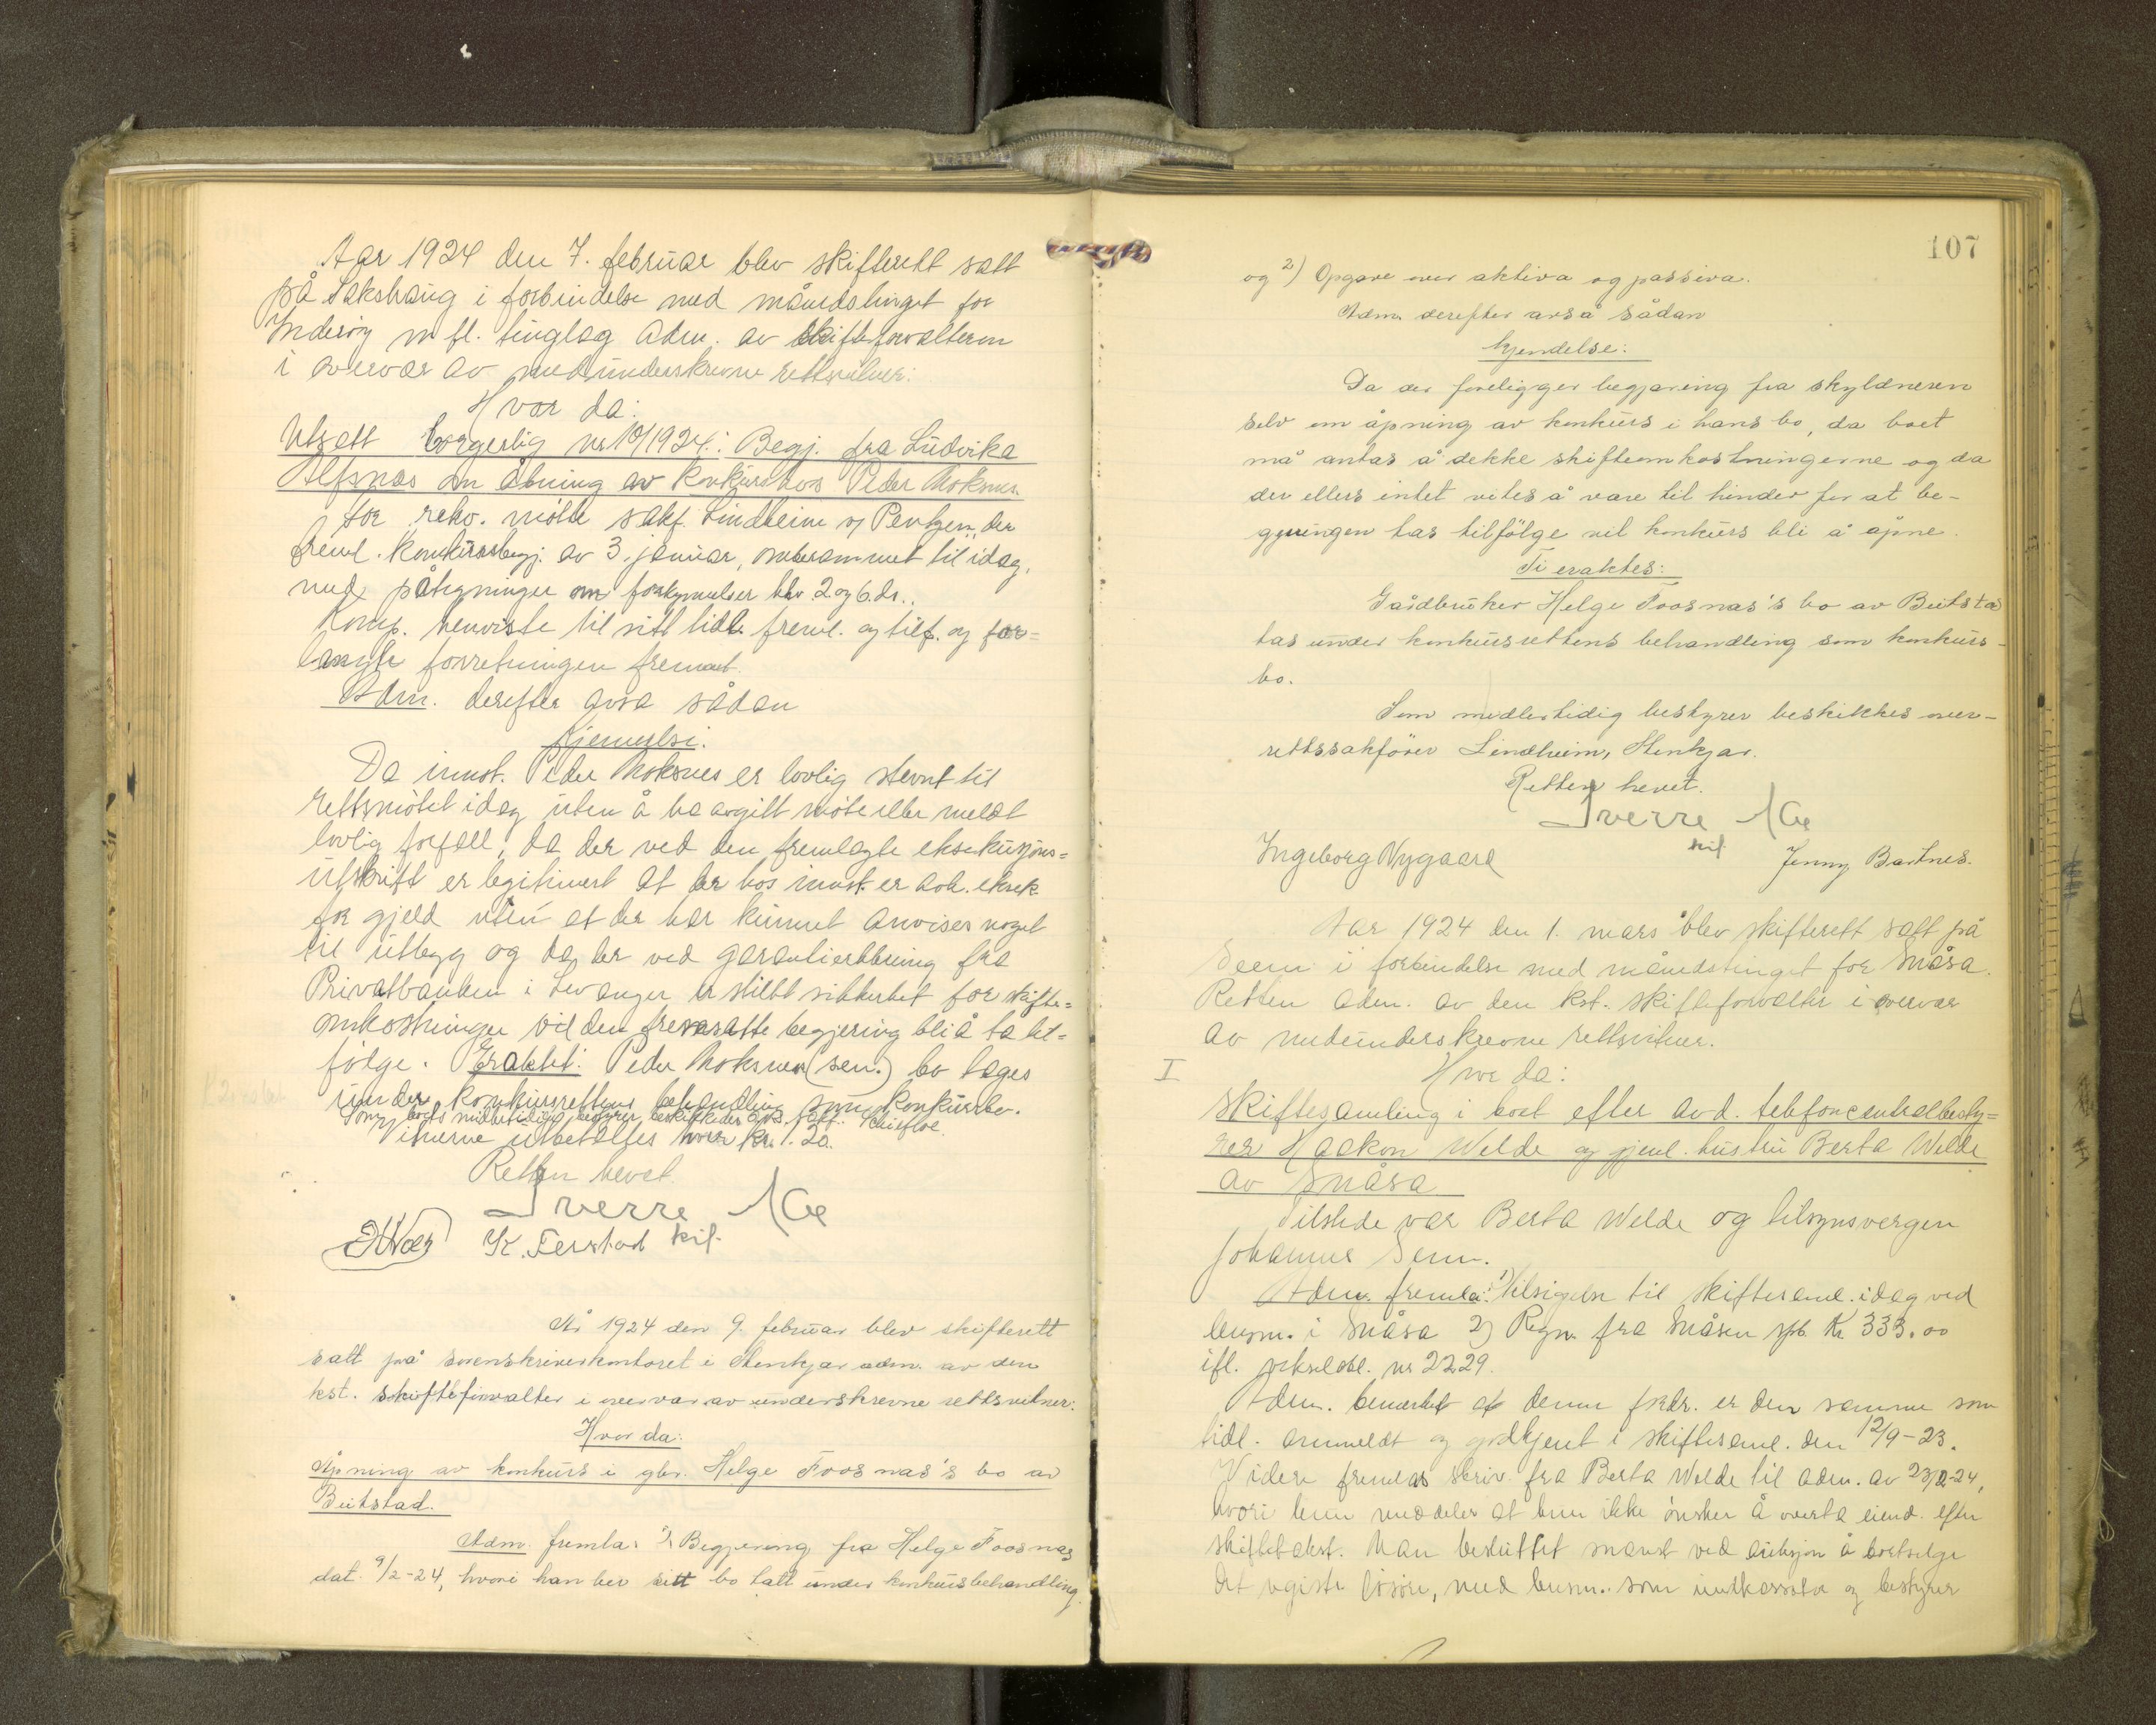 Aar 1924 den 7. februar blev skifterett satt
på Sakshaug i forbindelse med månedstinget for
Inderöy m fl. tinglag adm. av skifteforvalteren
i overvær av medunderskrevne rettsvitner:
Hvor da:
Utsatt borgerlig nr 10/1924: Begj. fra Ludvika
Alfsnes om åbning av konkurs hos Peder Moksnes.
For rekv. mötte sakf. Lindheim v/ Pentzen, der
freml. konkursbegj. av 3 januar, omberammet til idag,
med påtegninger om forkynnelser blev 2 og 6. ds..
Komp. henviste til sitt tidl. freml. og tilf. og for=
langte forretningen fremmet.
Adm. derefter avsa sådan
kjennelse:
Da innst. Peder Moksnes er lovlig stevnt til
rettsmötet idag uten å ha avgitt möte eller meldt
lovlig forfall, da der ved den fremlagte eksekusjons=
utskrift er legitimert at der hos innst. er avh. eksek
for gjeld uten at der har kunnet anvises noget
til utlegg og da der ved garantierklæring fra
Privatbanken i Levanger er stillet sikkerhet for skifte=
omkostninger vil den fremsatte begjering bli å ta til=
fölge. Eraktet: Peder Moksnes (sen.) bo tages
under konkursrettens behandling som konkursbo.
Som boets midlertidige bestyrer beskikkedes o.r. sakf. Schiefloe.
Vitnerne utbetaltes hver kr. 1.20.
Retten hevet.
Sverre
K. Ferstad skf.
År 1924 den 9. februar blev skifterett
satt på sorenskriverkontoret i Stenkjær adm. av den
kst. skifteforvalter i overvær av underskrevne rettsvitner.
Hvor da:
Åpning av konkurs i gbr. Helge Foosnæs's bo av
Beitstad.
Adm. fremla: 1) Begjering fra Helge Foosnæs
dat. 9/2-24, hvori han ber sitt bo tatt under konkursbehandling
107
og 2) Opgave over aktiva og passiva.
Adm. derefter avså sådan
kjendelse:
Da der foreligger begjæring fra skyldneren
selv om åpning av konkurs i hans bo, da boet
må antas å dekke skifteomkostningerne og da
der ellers intet vites å være til hinder for at be-
gjæringen tas tilfölge vil konkurs bli å åpne.
Ti eraktes:
Gårdbruker Helge Foosnæs's bo av Beitstad
tas under konkursrettens behandling som konkurs-
bo.
Som midlertidig bestyrer beskikkes over-
rettssakförer Lindheim, Stenkjær.
Retten hevet.
Sverre
skf.
Ingeborg Nygaard
Jenny Bartnes.
Aar 1924 den 1. mars blev skifterett satt på
Seem i forbindelse med månedstinget for Snåsa.
Retten adm. av den kst. skifteforvalter i overvær
av medunderskrevne rettsvitner.
I
Hvor da:
Skiftesamling i boet efter avd. telefoncentralbesty=
rer Haakon Welde og gjenl. hustru Berta Welde
av Snåsa
Tilstede var Berta Welde og tilsynsvergen
Johannes Seem.
Adm. fremla: 1) Tilsigelse til skiftesaml. idag ved
lensm. i Snåsa 2) Regn. fra Snåsen spb. Kr. 333.00
ifl. vekselobl. nr 2229.
Adm. bemerket at denne fordr. er den samme som
tidl. anmeldt og godkjent i skiftesaml. den 12/9-23.
Videre fremlas skriv. fra Berta Welde til adm. av 23/2-24,
hvori hun meddeler at hun ikke önsker å overta eiend. efter
skiftetakst. Man besluttet snarest ved auksjon å bortselge
det regist. lösöre, med lensm. som inndkassator og bestyrer